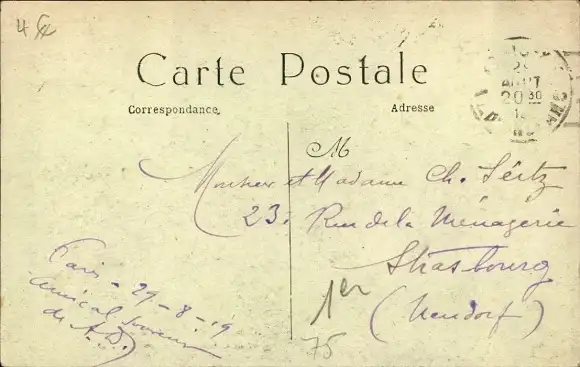 4 €
Carte Postale
Correspondance
Adresse
29
AOUT
20 30
M
Monsieur et Madame Ch. Seitz
23. Rue de la Ménagerie
Strasbourg
(Neudorf)
Paris - 29-8-19
amical souvenir
de A.D.
1er
75